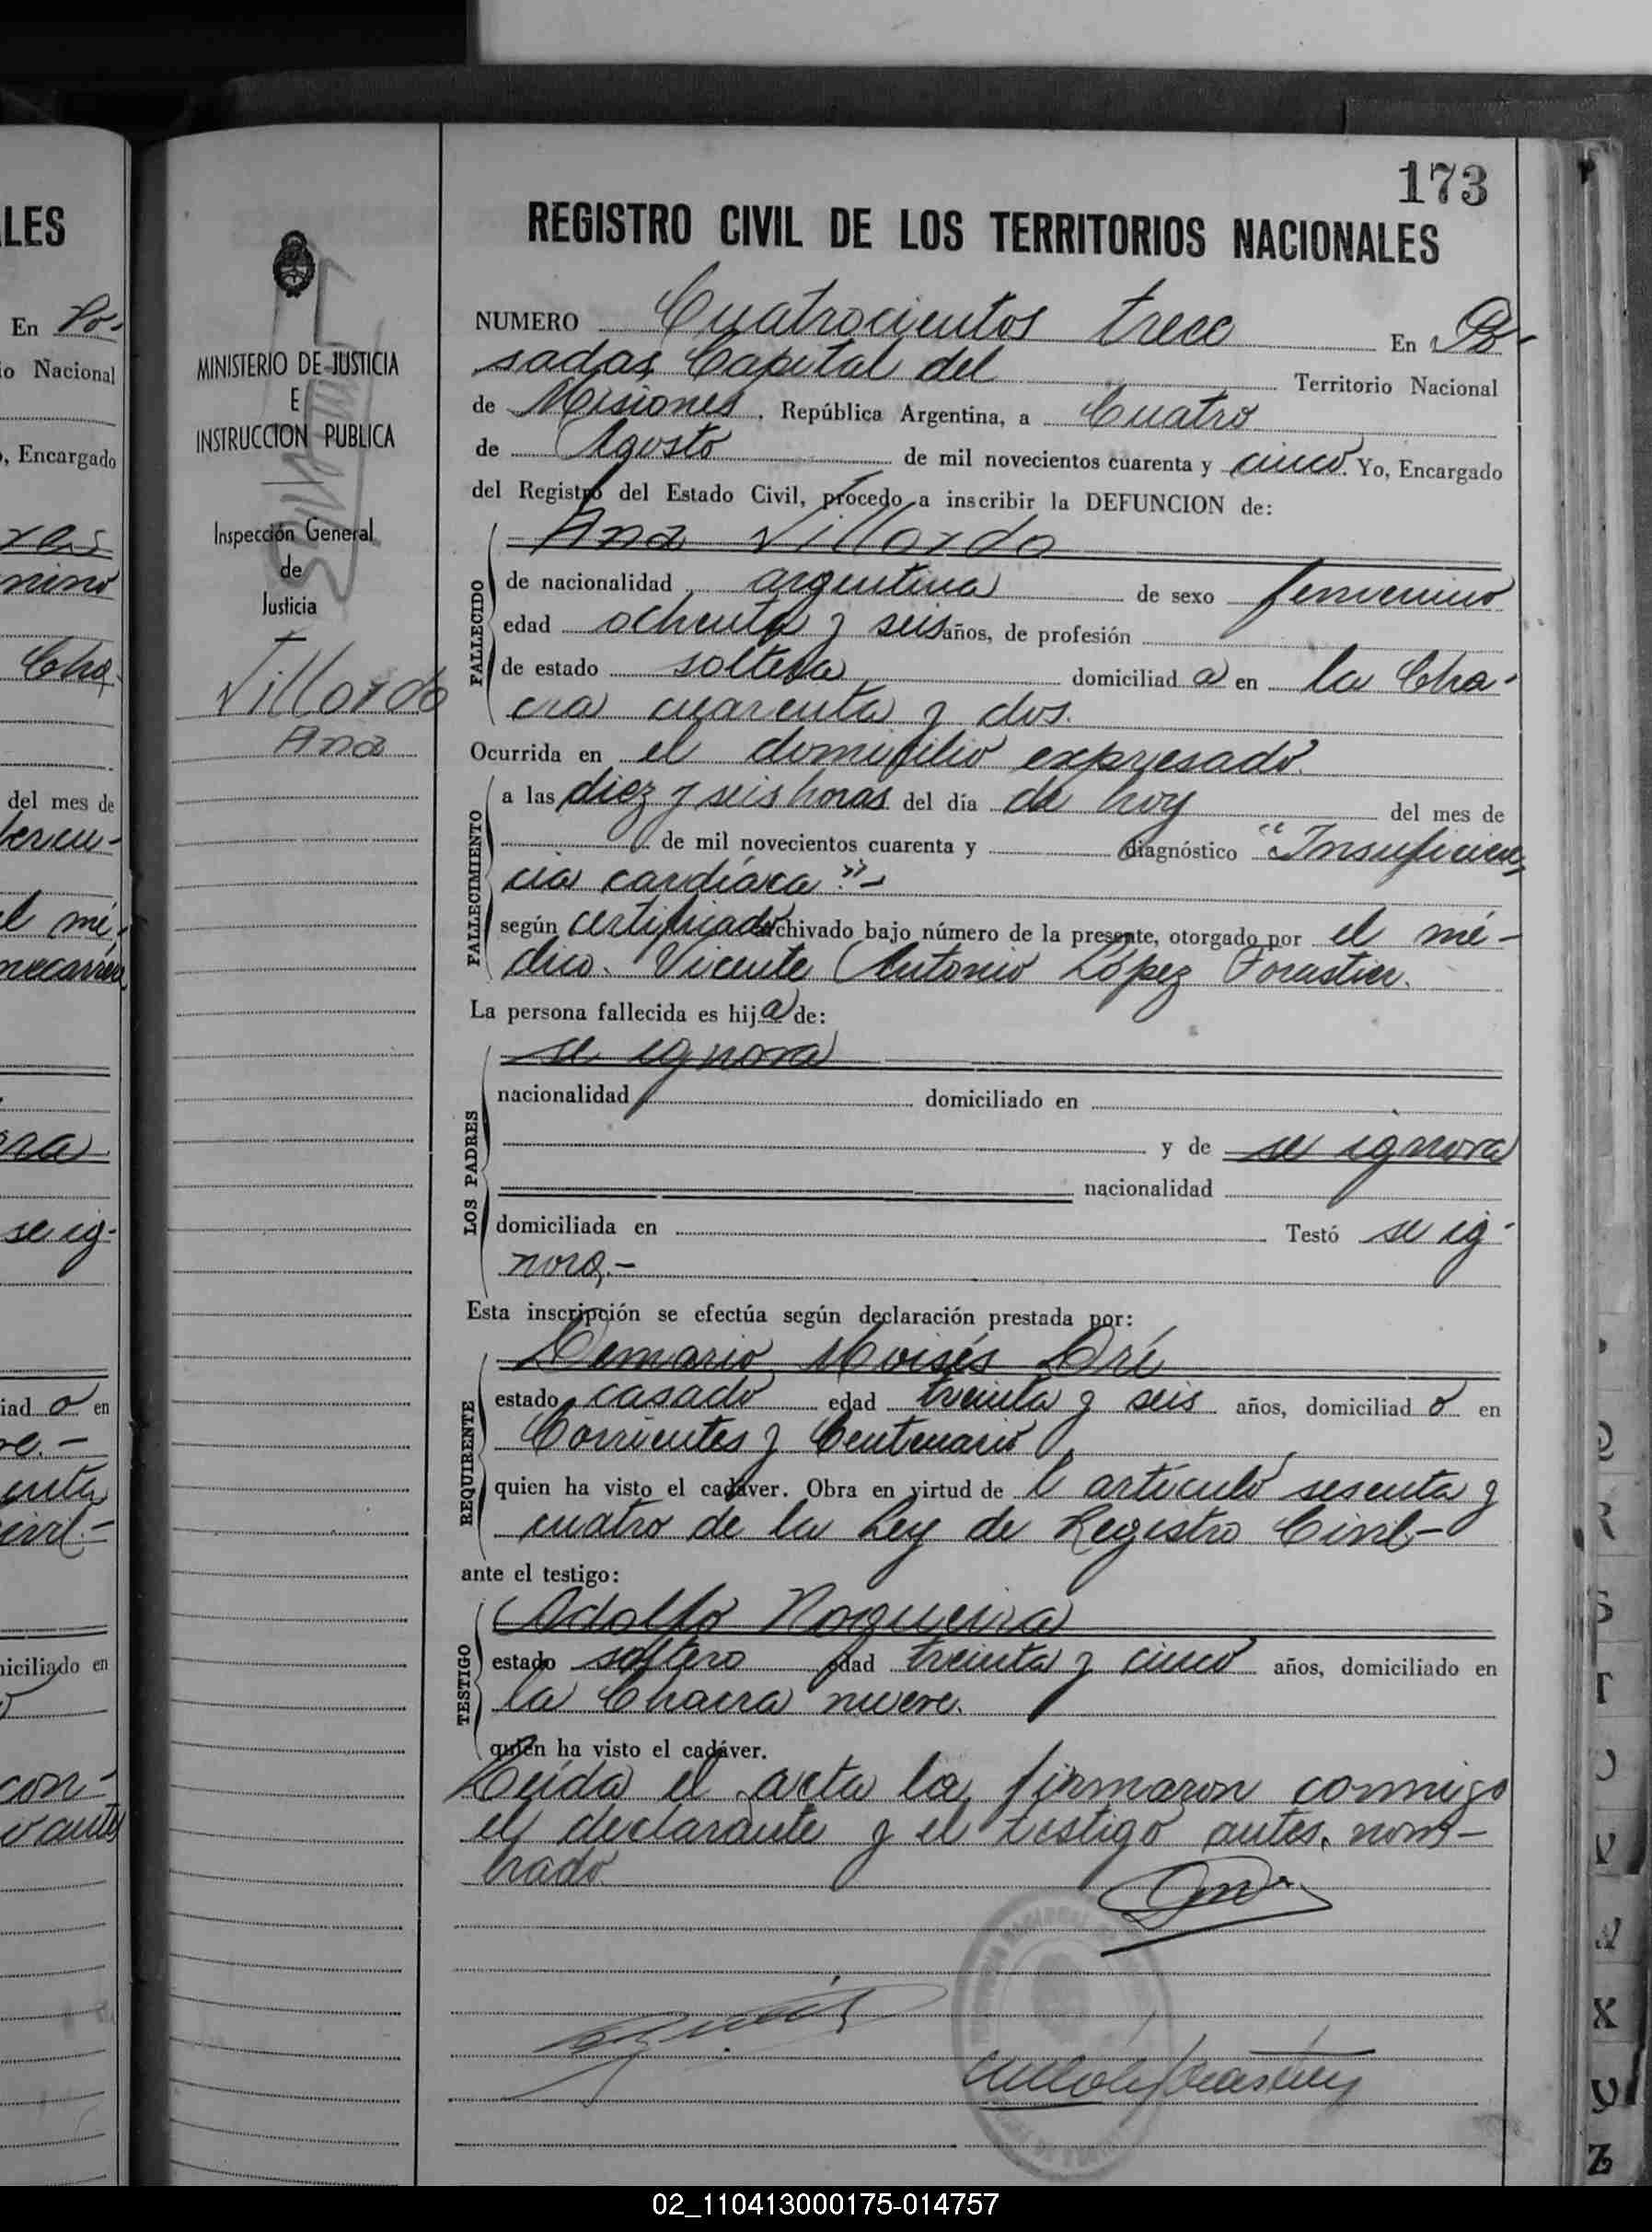 173
REGISTRO CIVIL DE LOS TERRITORIOS NACIONALES
NUMERO Cuatrocientos trece En Po-
sadas, Capital del Territorio Nacional
de Misiones, República Argentina, a Cuatro
de Agosto de mil novecientos cuarenta y cinco. Yo, Encargado
del Registro del Estado Civil, procedo a inscribir la DEFUNCION de:
Ana Villordo
FALLECIDO
de nacionalidad argentina de sexo femenino
edad ochenta y seis años, de profesión
de estado soltera domiciliad a en la Cha-
cra cuarenta y dos.
Ocurrida en el domicilio expresado.
FALLECIMIENTO
a las diez y seis horas del día de hoy del mes de
de mil novecientos cuarenta y diagnóstico "Insuficien-
cia cardíaca".-
según certificado archivado bajo número de la presente, otorgado por el mé-
dico. Vicente Antonio López Forastier.
La persona fallecida es hij a de:
LOS PADRES
se ignora
nacionalidad domiciliado en
y de se ignora
nacionalidad
domiciliada en Testó se ig-
nora.-
Esta inscripción se efectúa según declaración prestada por:
REQUIRENTE
Demario Moisés Oré
estado casado edad treinta y seis años, domiciliad o en
Corrientes y Centenario
quien ha visto el cadáver. Obra en virtud de l artículo sesenta y
cuatro de la Ley de Registro Civil-
ante el testigo:
TESTIGO
Adolfo Nogueira
estado soltero edad treinta y cinco años, domiciliado en
la Chacra nueve.
quien ha visto el cadáver.
Leída el acta la firmaron conmigo
el declarante y el testigo antes nom-
brado.
MINISTERIO DE JUSTICIA
E
INSTRUCCION PUBLICA
Inspección General
de
Justicia
Villordo
Ana
LES
En Po-
io Nacional
, Encargado
nino
Cha
del mes de
el mé-
se ig-
iad o en
civil.-
iciliado en
con-
R
S
T
U
V
X
Y
Z
02_110413000175-014757